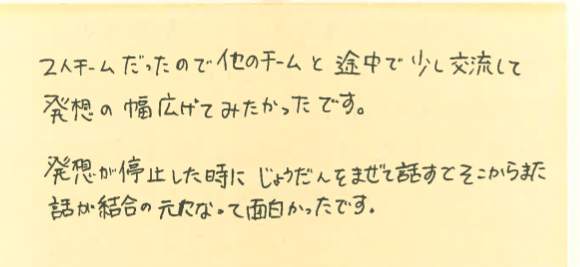 2人チームだったので他のチームと途中で少し交流して
発想の幅広げてみたかったです。
発想が停止した時にじょうだんをまぜて話すとそこからまた
話が結合の元になって面白かったです。